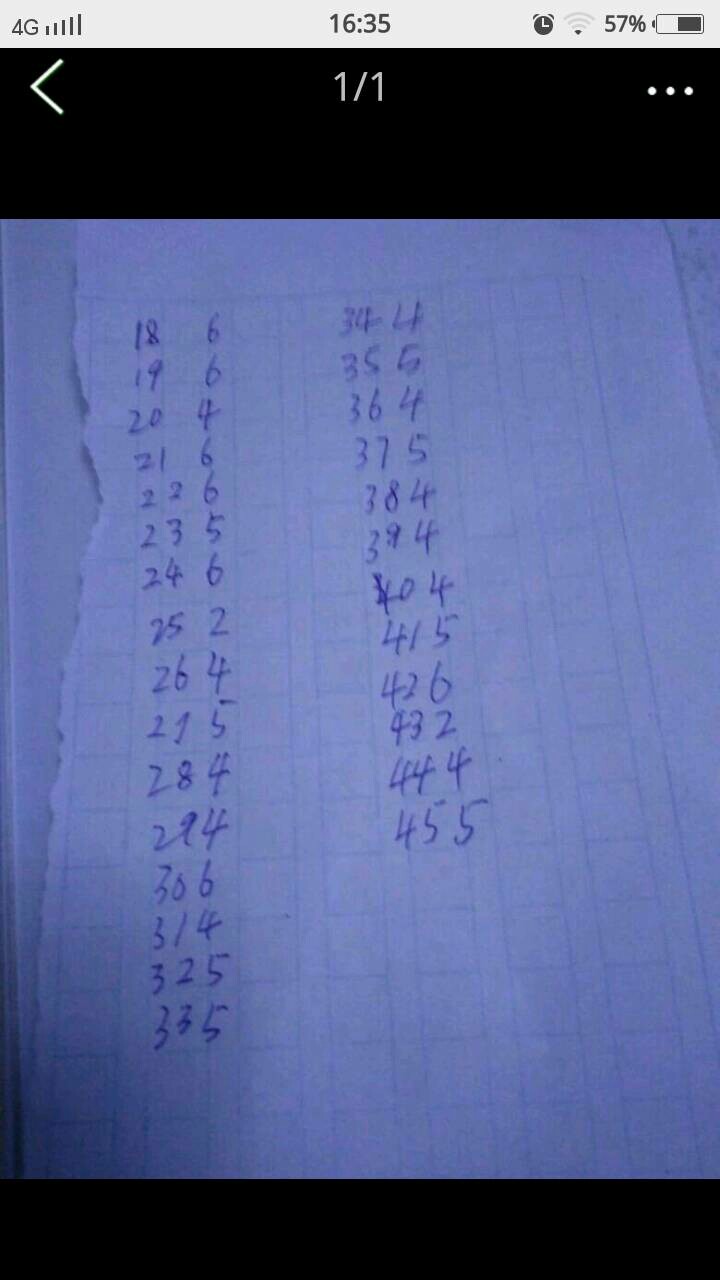 4G 16:35 57%
1/1
18 6
19 6
20 4
21 6
22 6
23 5
24 6
25 2
26 4
27 5
28 4
29 4
30 6
31 4
32 5
33 5
34 4
35 5
36 4
37 5
38 4
39 4
40 4
41 5
42 6
43 2
44 4
45 5